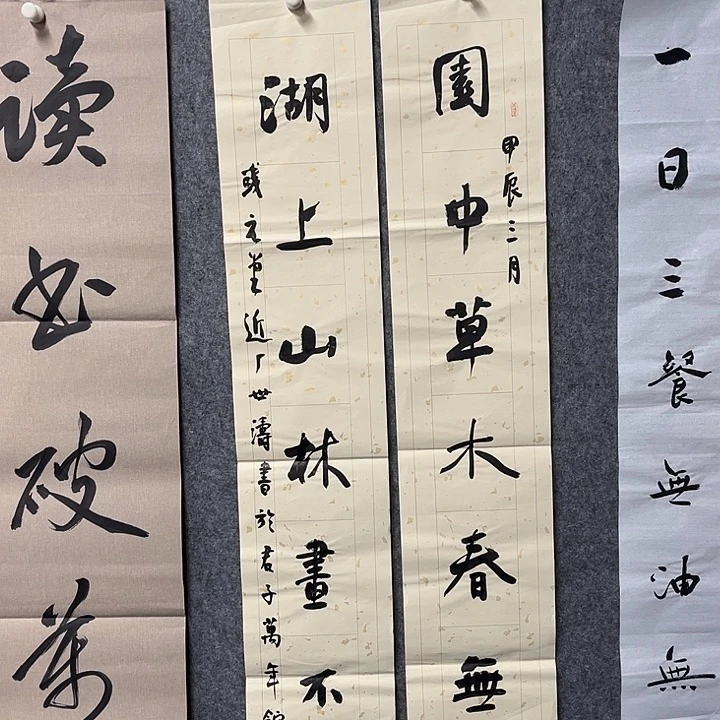 一日三餐無油無
甲辰三月
園中草木春無
湖上山林畫不
近厂世濤書於君子萬年
读书破萬